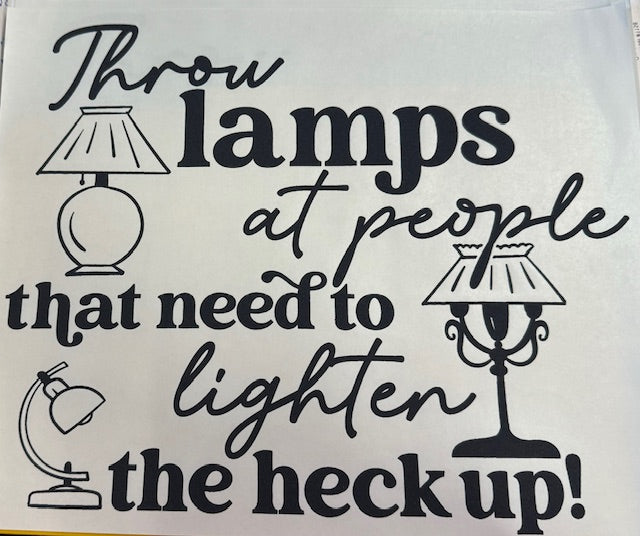 Throw
lamps
at people
that need to
lighten
the heck up!